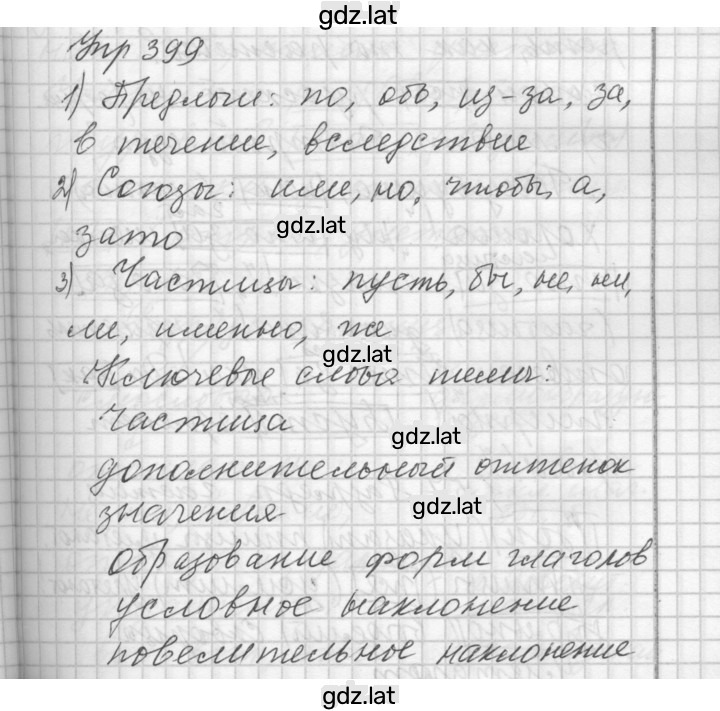 gdz.lat
Упр 399
1) Предлоги: по, обо, из-за, за,
в течение, вследствие
2) Союзы: или, но, чтобы, а,
gdz.lat
зато
3) Частицы: пусть, бы, не, ни,
ли, именно, же
gdz.lat
Ключевые слова темы:
Частица
gdz.lat
дополнительный оттенок
значения
gdz.lat
образование форм глаголов
условное наклонение
повелительное наклонение
gdz.lat